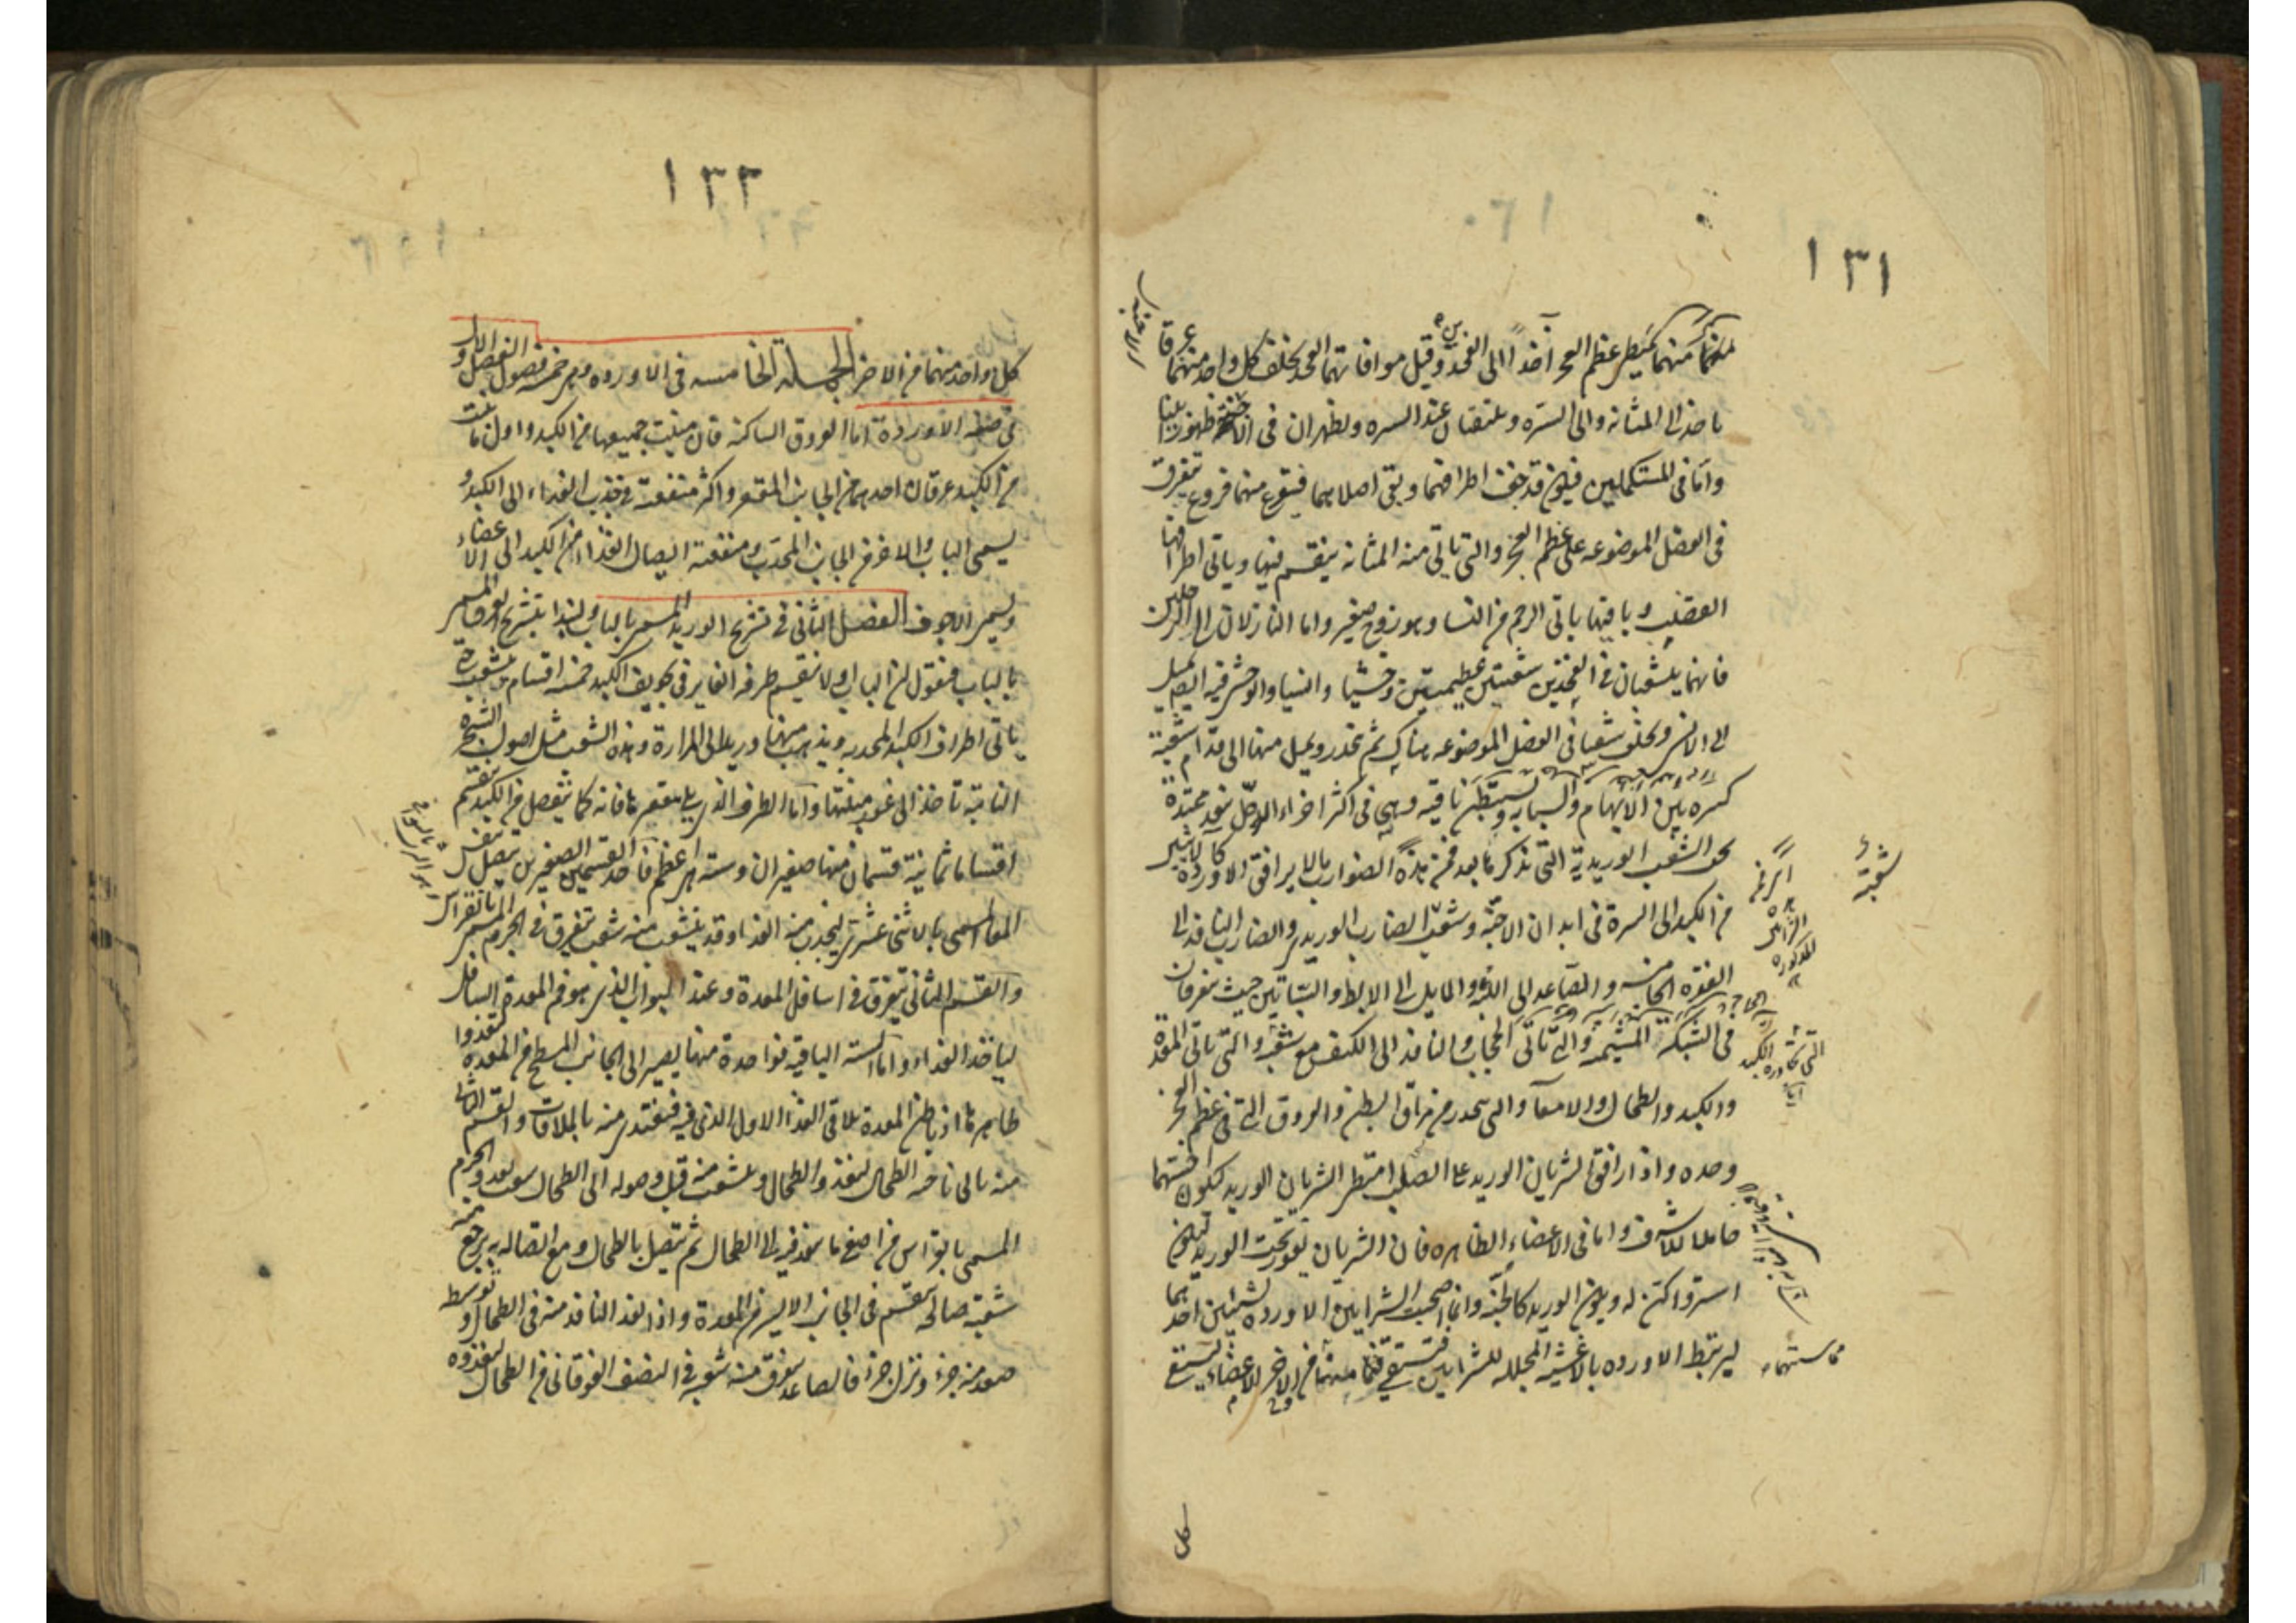 ١٣١
منهما يمتطي عظم العجز آخذا الى الفخذين وقيل موافاتهما الفخذ يخلف كل واحد منهما عرقا
ياخذ الى المثانه والى السره ويلتقيان عند السره ويظهران في الاجنه ظهورا بينا
واما في المستكملين فيكون قد جف اطرافهما وبقى اصلاهما فيتفرع منهما فروع تتفرق
في العضل الموضوعه على عظم العجز والتى تاتي منه المثانه ينقسم فيها وياتى اطرافها
القضيب وباقيها ياتى الرحم من النسا وهو زوج صغير واما النازلان الى الرجلين
فانهما يتشعبان في الفخذين شعبتين عظيمتين وحشيا وانسيا والوحشى فيه ايضا ميل
الى الانسى ويخلف شعبا في العضل الموضوعه هناك ثم تنحدر ويميل منها الى قدام شعبة
كبيره بين الابهام والسبابه ويستبطن باقيه وهى في اكثر اجزاء الرجل نفوذ ممتدة
تحت الشعب الوريدية التى نذكرها بعد فمن هذه الضوارب ما لا يرافق الاوردة كالاتيين
من الكبد الى السرة في ابدان الاجنة وشعب الضارب الوريدى والضارب النافذ الى
الفقرة الخامسه والصاعد الى اللبه والمايل الى الابط والسباتيين حيث يتفرقان
في الشبكه والمشيمه والتى تاتى الحجاب والنافذ الى الكتف مع شعبه والتى تاتى المعدة
والكبد والطحال والامعاء والتى تنحدر من مراق البطن والعروق التى في عظم العجز
وحده واذا رافق الشريان الوريد على الصلب امتطى الشريان الوريد ليكون اخسهما
حاملا للاشرف واما في الاعضاء الظاهره فان الشريان يغور تحت الوريد ليكون
استر واكن له ويكون الوريد كالجنه وانما اصحبت الشرايين الاورده لشيئين احدهما
ليرتبط الاورده بالاغشيه المجلله للشرايين فيستقي مما بينهما من الاعضاء والاخر ليستقى
شعبة
١٣٢
كل واحد منهما من الاخر الجملة الخامسه في الاورده وهى خمسه فصول الفصل الاول
في صفه الاوردة اما العروق الساكنه فان منبت جميعها من الكبد واول ما ينبت
من الكبد عرقان احدهما من الجانب المقعر واكثر منفعته في جذب الغذاء الى الكبد و
يسمى الباب والاخر من الجانب المحدب ومنفعته ايصال الغذاء من الكبد الى الاعضاء
ويسمى الاجوف الفصل الثاني في تشريح الوريد المسمى بالباب ولنبدا بتشريح العرق المسمى
بالباب فنقول ان الباب اولا ينقسم طرفه الغاير في تجويف الكبد خمسه اقسام ويتشعب حتى
ياتى اطراف الكبد المحدبه ويذهب منها وريد الى المرارة وهذه الشعب مثل اصول الشجرة
النابتة تاخذ الى غور منبتها واما الطرف الذى يلى تقعيرها فانه كما ينفصل من الكبد ينقسم
اقساما ثمانية قسمان منها صغيران وستة هى اعظم فاحد القسمين الصغيرين يتصل بنفس
المعا المسمى بالاثنى عشرى ليجذب منه الغذا وقد يتشعب منه شعب تتفرق في الجرم المسمى بانقراس
والقسم الثانى يتفرق في اسافل المعدة وعند البواب الذى هو فم المعدة السافل
لياخذ الغذاء واما الستة الباقيه فواحدة منها يصير الى الجانب المسطح من المعدة لتغذوا
ظاهرها اذ باطن المعدة يلاقى الغذا الاول الذى فيه فيغتذى منه بالملاقات والقسم الثانى
منه ياتى ناحيه الطحال ليغذو الطحال ويتشعب منه قبل وصوله الى الطحال شعب تغدو الجرم
المسمى بانقراس من اصفى ما ينفذ فيه الى الطحال ثم يتصل بالطحال ومع اتصاله به يرجع منه
شعبة صالحه ينقسم في الجانب الايسر من المعدة واذا نفذ النافذ منه في الطحال وتوسطه
صعد منه جزء ونزل جزء فالصاعد يتفرق منه شعبه في النصف الفوقانى من الطحال ليغذوه